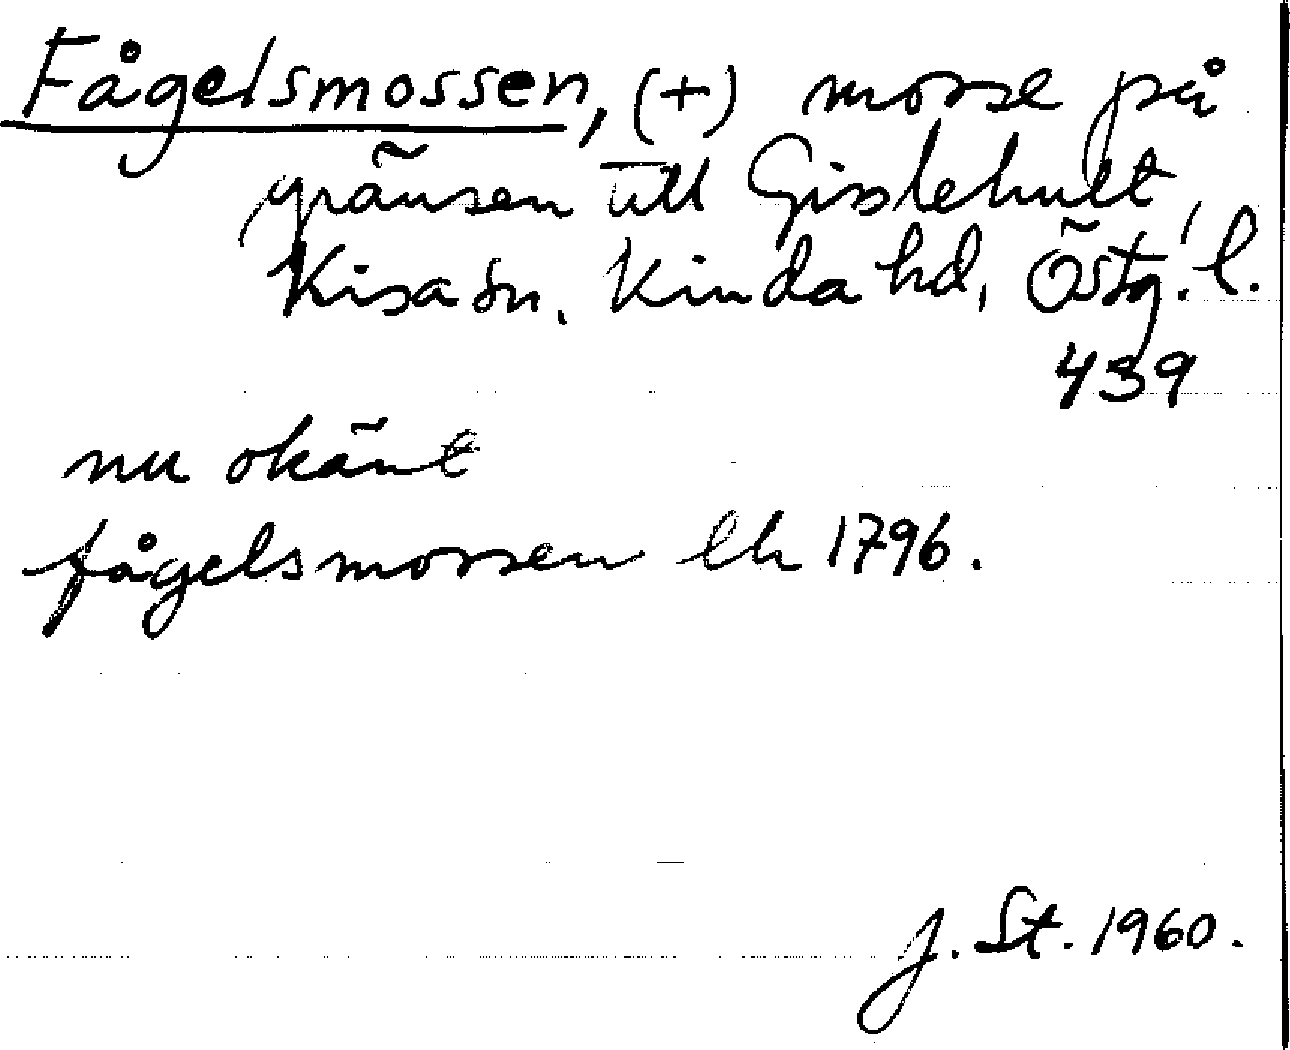 Fågelsmossen, (+) mosse på
gränsen till Gisslehult,
Kisa sn. Kinda hd, Östg. l.
439
nu okänt
fågelsmossen lh 1796.
J. St. 1960.